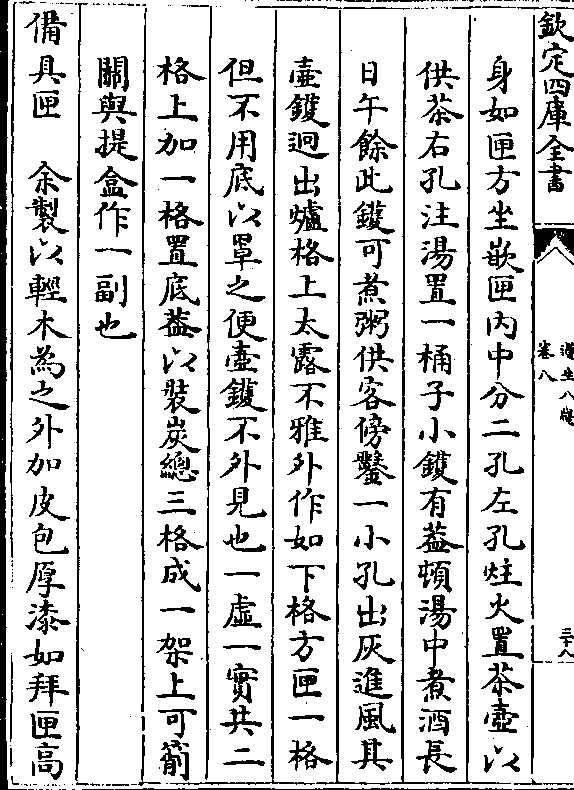 欽定四庫全書
遵生八牋
卷八
三十八
身如匣方坐嵌匣内中分二孔左孔炷火置茶壺以
供茶右孔注湯置一桶子小鑊有葢頓湯中煮酒長
日午餘此鑊可煮粥供客傍鑿一小孔出灰進風其
壺鑊迥出爐格上太露不雅外作如下格方匣一格
但不用底以罩之便壺鑊不外見也一虛一實共二
格上加一格置底葢以裝炭總三格成一架上可箾
關與提盒作一副也
備具匣　余製以輕木為之外加皮包厚漆如拜匣高